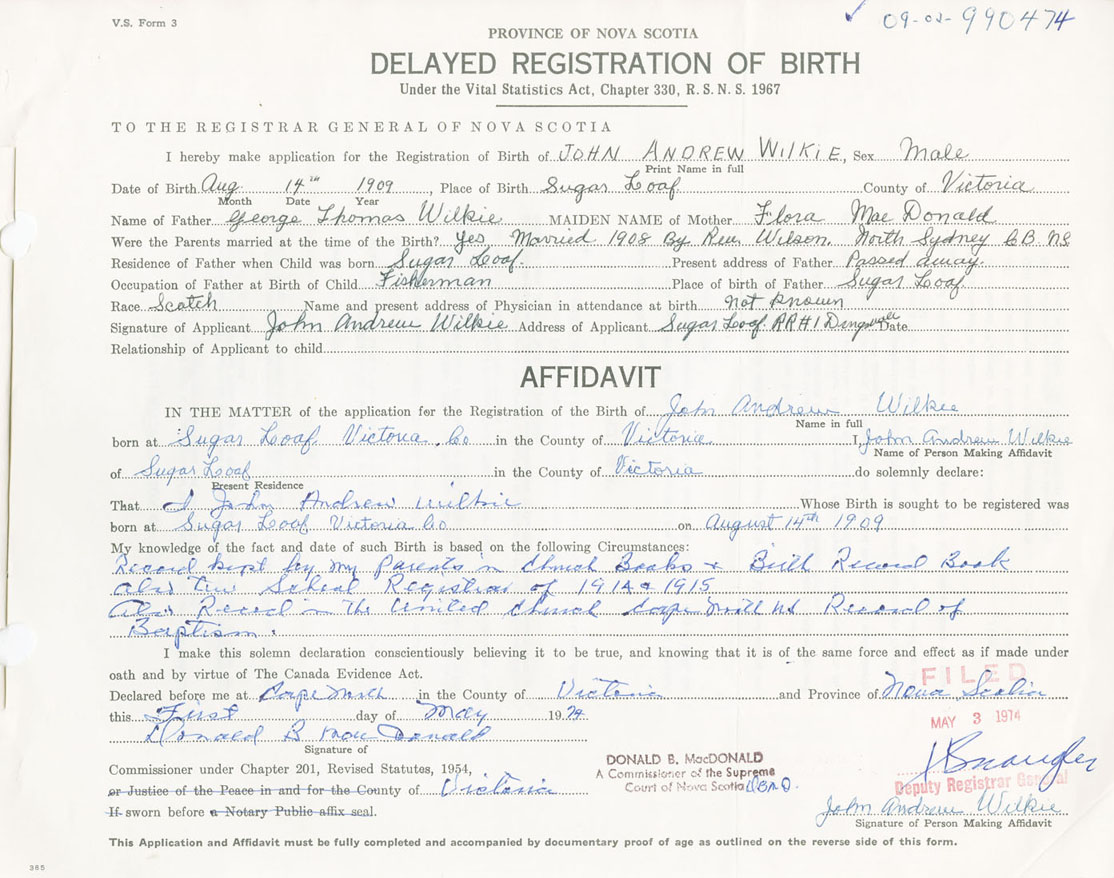 V.S. Form 3
09-02-990474
PROVINCE OF NOVA SCOTIA
DELAYED REGISTRATION OF BIRTH
Under the Vital Statistics Act, Chapter 330, R. S. N. S. 1967
TO THE REGISTRAR GENERAL OF NOVA SCOTIA
I hereby make application for the Registration of Birth of JOHN ANDREW WILKIE, Sex Male
Print Name in full
Date of Birth Aug. 14th 1909, Place of Birth Sugar Loaf County of Victoria
Month Date Year
Name of Father George Thomas Wilkie MAIDEN NAME of Mother Flora Mae Donald
Were the Parents married at the time of the Birth? Yes, Married 1908 By Rev. Wilson. North Sydney C.B. NS
Residence of Father when Child was born Sugar Loaf. Present address of Father Passed away.
Occupation of Father at Birth of Child Fisherman Place of birth of Father Sugar Loaf
Race Scotch Name and present address of Physician in attendance at birth not known
Signature of Applicant John Andrew Wilkie Address of Applicant Sugar Loaf. RR#1 Dingwall Date
Relationship of Applicant to child
AFFIDAVIT
IN THE MATTER of the application for the Registration of the Birth of John Andrew Wilkie
Name in full
born at Sugar Loaf Victoria Co in the County of Victoria I, John Andrew Wilkie
Name of Person Making Affidavit
of Sugar Loaf in the County of Victoria do solemnly declare:
Present Residence
That I John Andrew Wilkie Whose Birth is sought to be registered was
born at Sugar Loaf Victoria Co on August 14th 1909
My knowledge of the fact and date of such Birth is based on the following Circumstances:
Record kept by my Parents in Church Books & Birth Record Book
also School Registrar of 1914 & 1915
Also Record in The United Church Cape North NS Record of
Baptism.
I make this solemn declaration conscientiously believing it to be true, and knowing that it is of the same force and effect as if made under
oath and by virtue of The Canada Evidence Act.
FILED
Declared before me at Cape North in the County of Victoria and Province of Nova Scotia
this First day of May 1974
MAY 3 1974
Donald B MacDonald
Signature of
Commissioner under Chapter 201, Revised Statutes, 1954,
or Justice of the Peace in and for the County of Victoria
If sworn before a Notary Public affix seal.
DONALD B. MacDONALD
A Commissioner of the Supreme
Court of Nova Scotia
Deputy Registrar General
John Andrew Wilkie
Signature of Person Making Affidavit
This Application and Affidavit must be fully completed and accompanied by documentary proof of age as outlined on the reverse side of this form.
385